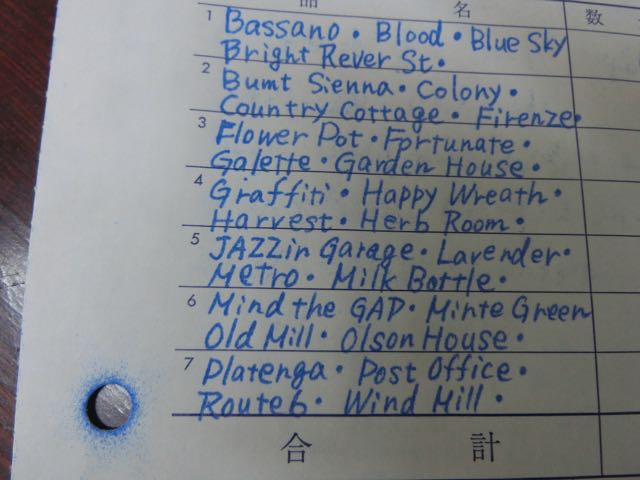 品 名 数
1 Bassano • Blood • Blue Sky
Bright Rever St •
2 Bumt Sienna • Colony •
Country Cottage • Firenze •
3 Flower Pot • Fortunate •
Galette • Garden House •
4 Graffiti • Happy Wreath •
Harvest • Herb Room •
5 JAZZin Garage • Lavender •
Metro • Milk Bottle •
6 Mind the GAP • Minte Green
Old Mill • Olson House •
7 Platenga • Post Office •
Route6 • Wind Mill •
合 計